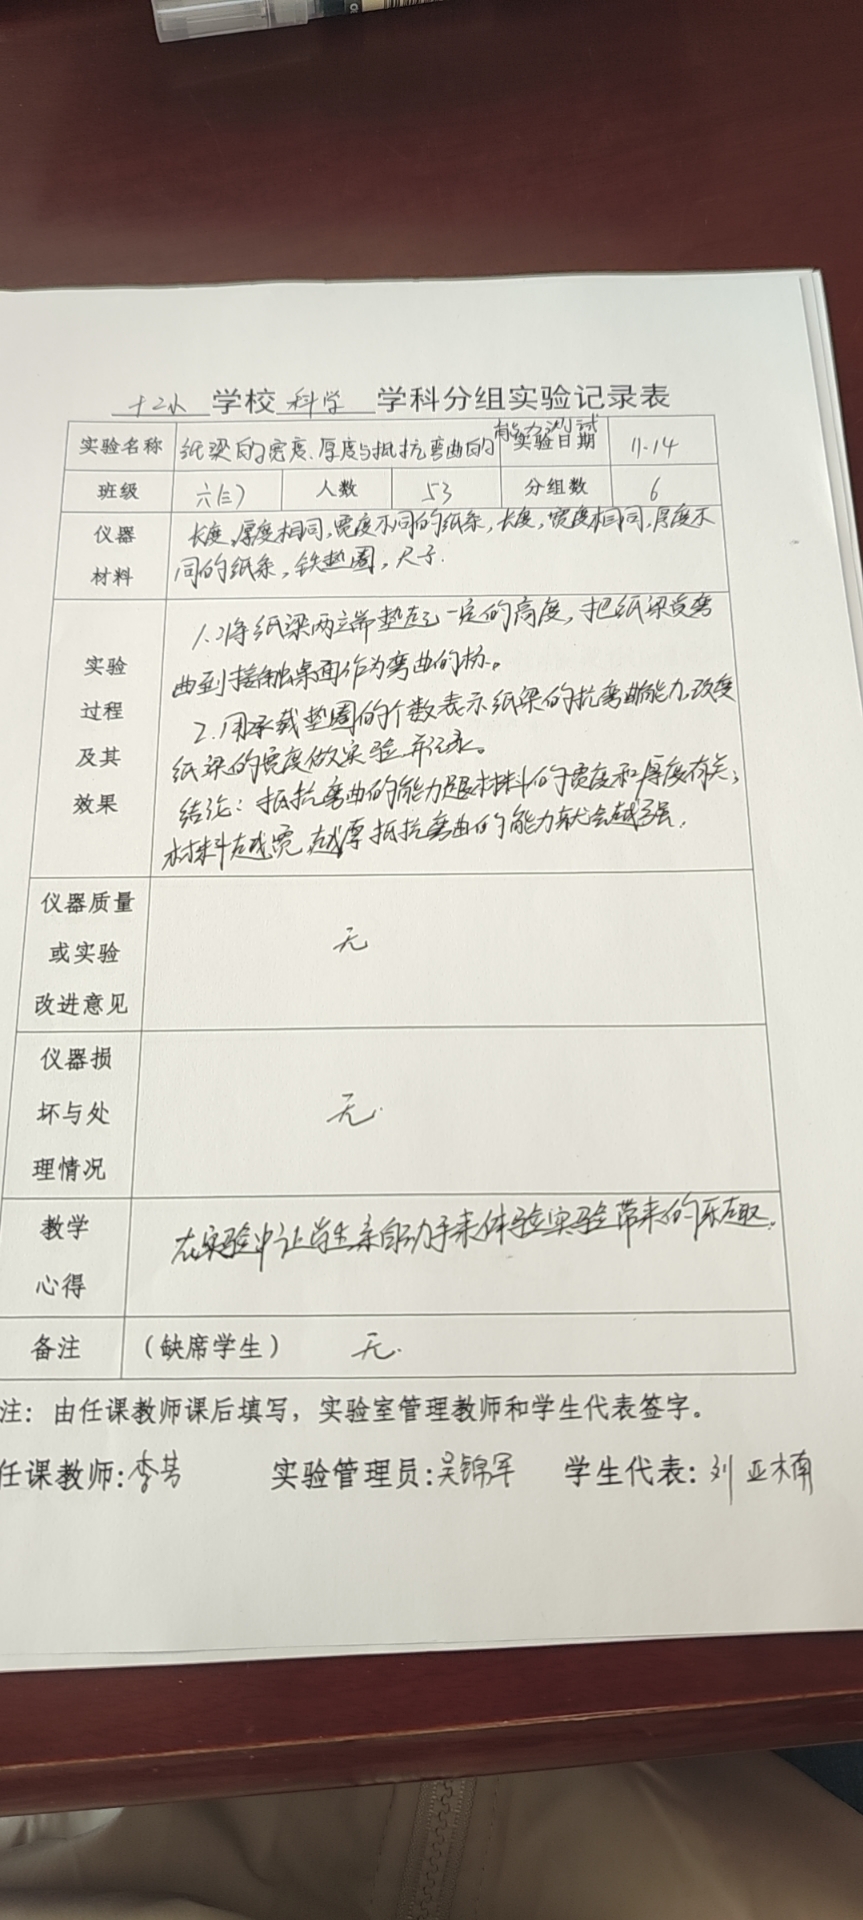 十二小 学校 科学 学科分组实验记录表
实验名称 纸梁的宽度、厚度与抵抗弯曲的能力测试 实验日期 11.14
班级 六(三) 人数 53 分组数 6
仪器材料 长度、厚度相同,宽度不同的纸条,长度,宽度相同,厚度不
同的纸条,铁垫圈,尺子.
实验过程及其效果
1.将纸梁两立端垫起一定的高度,把纸梁弯
曲到接触桌面作为弯曲的标。
2.用承载垫圈的个数表示纸梁的抗弯曲能力,改变
纸梁的宽度做实验并记录。
结论:抵抗弯曲的能力跟材料的宽度和厚度有关,
材料越宽、越厚抵抗弯曲的能力就会越强.
仪器质量或实验改进意见 无
仪器损坏与处理情况 无.
教学心得 在实验中让学生亲自动手来体验实验带来的乐趣.
备注 (缺席学生) 无.
注:由任课教师课后填写,实验室管理教师和学生代表签字。
任课教师:李芳 实验管理员:吴锦军 学生代表:刘亚楠